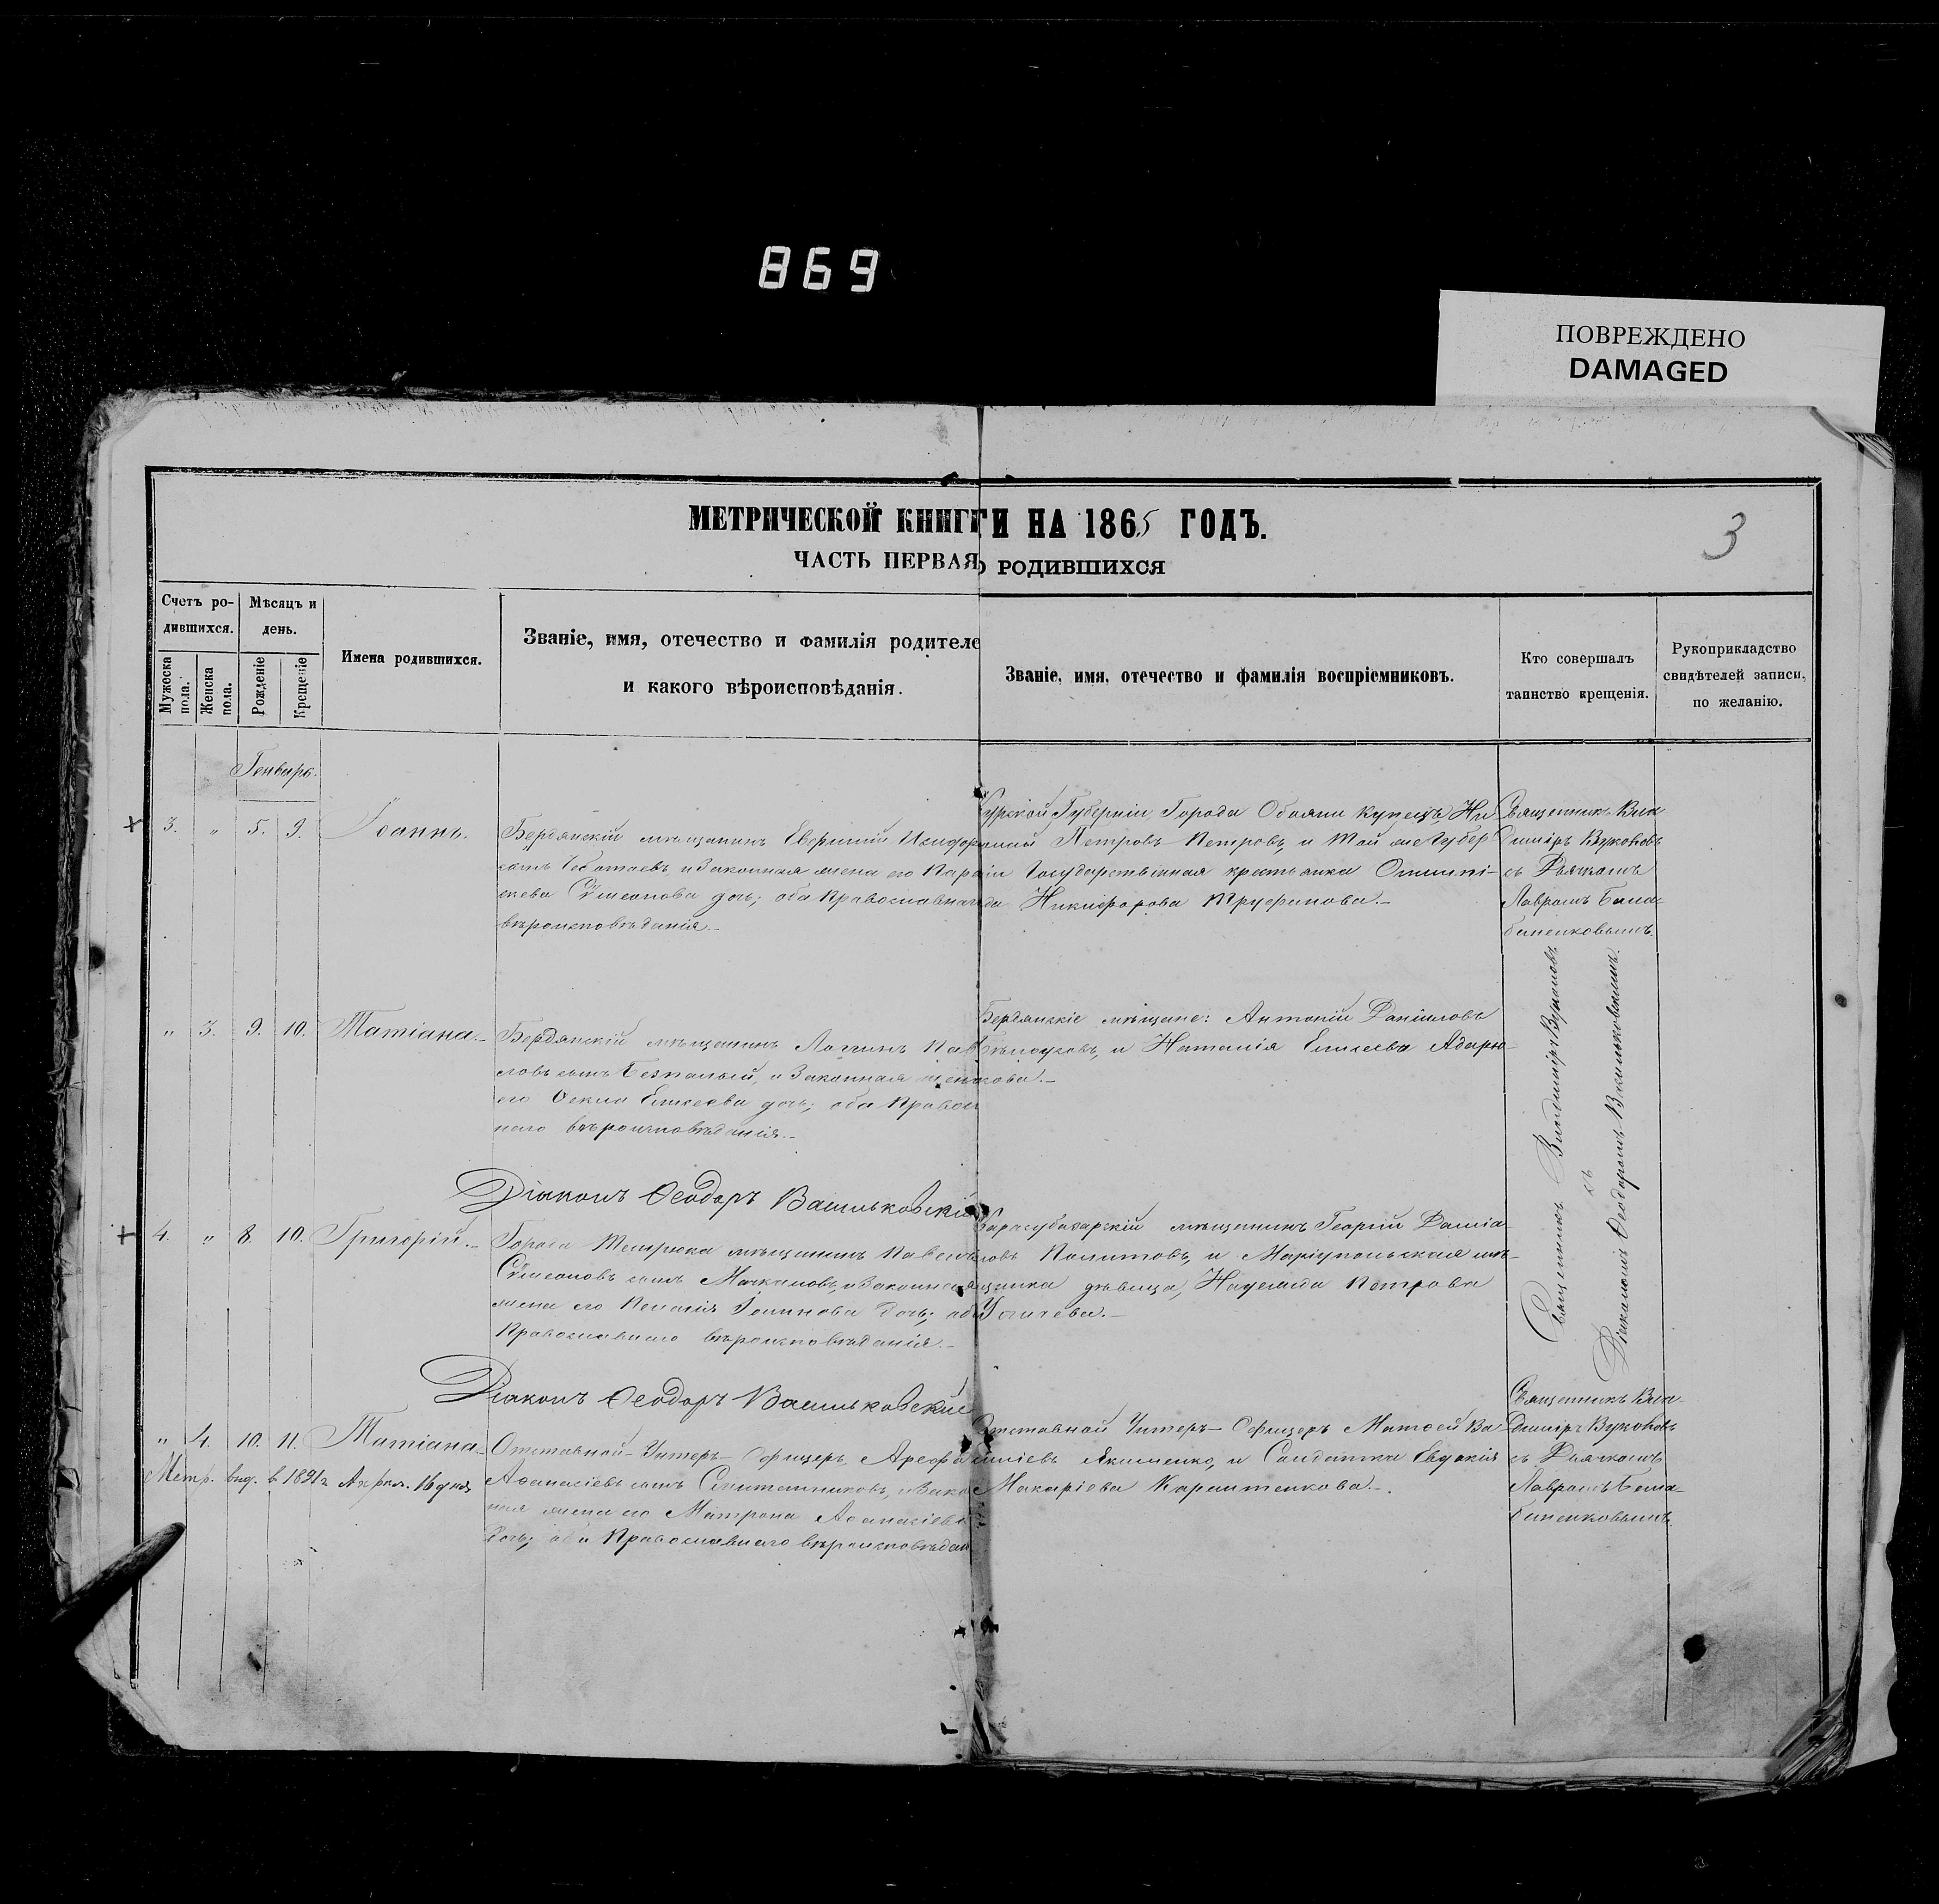 869
ПОВРЕЖДЕНО
DAMAGED
МЕТРИЧЕСКОЙ КНИГИ НА 1865 ГОДЪ.
3
ЧАСТЬ ПЕРВАЯ О РОДИВШИХСЯ
Счетъ ро-
дившихся.
Мужеска
пола.
Женска
пола.
Мѣсяцъ и
день.
Рожденіе
Крещеніе
Имена родившихся.
Званіе, имя, отечество и фамилія родителе
и какого вѣроисповѣданія.
Званіе, имя, отечество и фамилія воспріемниковъ.
Кто совершалъ
таинство крещенія.
Рукоприкладство
свидѣтелей записи,
по желанію.
Генварь.
3. " 5. 9. Іоаннъ.
Бердянскій мѣщанинъ Евфимій Исидоровъ
сынъ и законная жена его Пара
скева Сѵмеонова дочь; оба Православнаго
вѣроисповѣданія.
Курской Губерніи Города Обояни купецъ Ни
Петровъ Петровъ, и той же Губер
ніи Государственная крестьянка
Никифорова Труфанова.
Священникъ Вла
диміръ Вуколовъ
съ Дьячкомъ
Лавромъ Бала
баненковымъ.
" 3. 9. 10. Татіана.
Бердянскій мѣщанинъ Логгинъ Пав
ловъ сынъ Безпалый, и Законная жена
его Ѳекла Елисеева дочь; оба Правосл
наго вѣроисповѣданія.
Бердянскіе мѣщане: Антоній Даніиловъ
Бѣлоусовъ, и Наталія Елисеева Адарю-
кова.
Священникъ Владиміръ Вуколовъ
съ
Діакономъ Ѳеодоромъ Васильковскимъ.
Діаконъ Ѳеодоръ Васильковскій
4. " 8. 10. Григорій.
Города Темрюка мѣщанинъ Павелъ
Сѵмеоновъ сынъ и Законная
жена его Пелагія Іоаннова дочь; оба
Православнаго вѣроисповѣданія.
Карасубазарскій мѣщанинъ Георгій Даміа
новъ и Маріупольская мѣ-
щанка дѣвица, Надежда Петрова
Діаконъ Ѳеодоръ Васильковскій
" 4. 10. 11. Татіана.
Метр. выд. в 1891 г. Апрѣля 16 дня
Отставной Унтеръ-Офицеръ, Арефа
Аѳанасіевъ сынъ и Зако
ная жена его Матрона Аѳанасіева
дочь; оба Православнаго вѣроисповѣдан
Отставной Унтеръ-Офицеръ Матѳей Ва
силіевъ Якименко, и Солдатка Евдокія
Макаріева
Священникъ Вла-
диміръ Вуколовъ
съ Дьячкомъ
Лавромъ Бала-
баненковымъ.